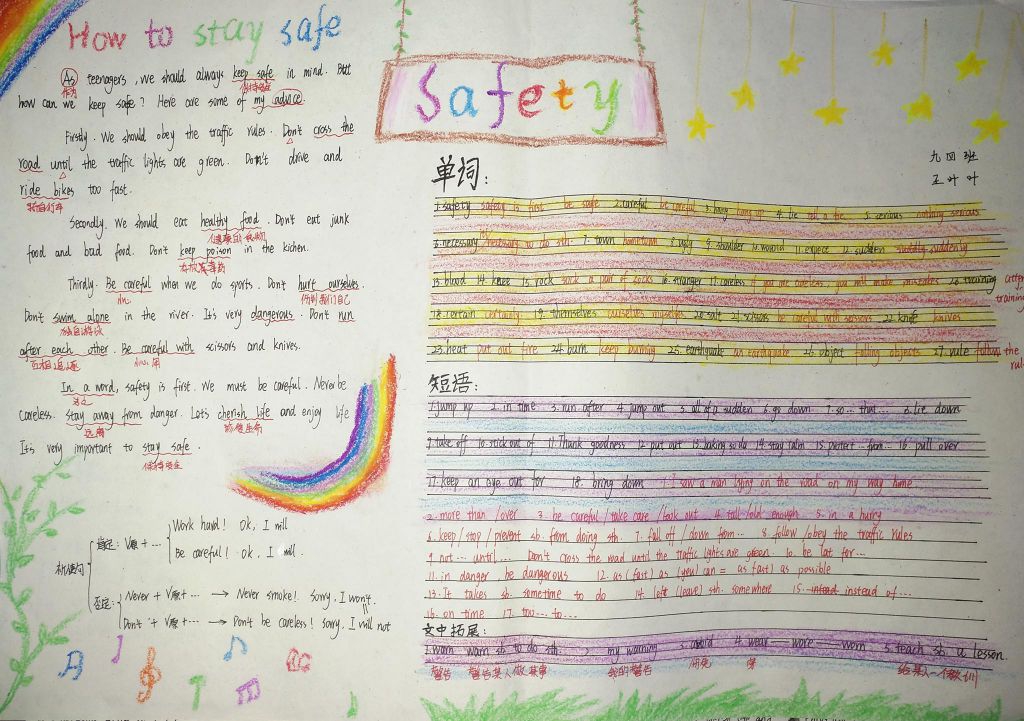 How to stay safe
As teenagers, we should always keep safe in mind. But
作为 保持安全
how can we keep safe? Here are some of my advice.
Firstly. We should obey the traffic rules. Don't cross the
road until the traffic lights are green. Don't drive and
ride bikes too fast.
骑自行车
Secondly. We should eat healthy food. Don't eat junk
健康的食物
food and bad food. Don't keep poison in the kichen.
存放毒药
Thirdly. Be careful when we do sports. Don't hurt ourselves.
小心 伤到我们自己
Don't swim alone in the river. It's very dangerous. Don't run
独自游泳
after each other. Be careful with scissors and knives.
互相追逐 小心用
In a word, safety is first. We must be careful. Never be
总之
careless. Stay away from danger. Lets cherish life and enjoy life
远离 珍惜生命
It's very important to stay safe.
保持安全
祈使句
肯定: V原 + ...
Work hard! Ok, I will
Be careful! Ok. I will.
否定:
Never + V原 + ... → Never smoke! Sorry. I won't.
Don't + V原 + ... → Don't be careless! Sorry. I will not
Safety
九四班
王叶叶
单词:
1.safety safety is first be safe 2.careful be careful 3.hang hang up 4.lie tell a lie 5.serious nothing serious
6.necessary necessary to do sth. 7.town 8.ugly 9.shoulder 10.would 11.expece 12.sudden suddenly
13.blood 14.knee 15.rock sock a pair of socks 16.stranger 17.careless if you are careless, you will make mistakes 20.training after training
18.certain certainly 19.themselves ourselves 20.salt 21.scissors be careful with scissors 22.knife knives
23.heat put out fire 24.burn keep burning 25.earthquake an earthquake 26.object falling objects 27.rule follow the rul
短语:
1.jump up 2.in time 3.run after 4.jump out 5.all of a sudden 6.go down 7.so... that... 8.lie down
9.take off 10.stick out of 11.Thank goodness 12.put out 13.baking soda 14.stay calm 15.protect...from... 16.pull over
17.keep an eye out for 18.bring down 1.I saw a man lying on the road on my way home
2.more than /over 3.be careful /take care /look out 4.tall /old enough 5.in a hurry
6.keep /stop /prevent sb. from doing sth. 7.fall off /down from... 8.follow /obey the traffic rules
9.not ... until ... Don't cross the road until the traffic lights are green. 10.be lat for...
11.in danger, be dangerous 12.as (fast) as (you) can = as fast) as possible
13.It takes sb. sometime to do 14.left (leave) sth. somewhere 15.instead of...
16.on time 17.too... to...
文中拓展:
1.warn warn sb to do sth. 2.my warning 3.avoid 4.wear — wore worn 5.teach sb a lesson.
警告 警告某人做某事 我的警告 避免 穿 给某人一个教训